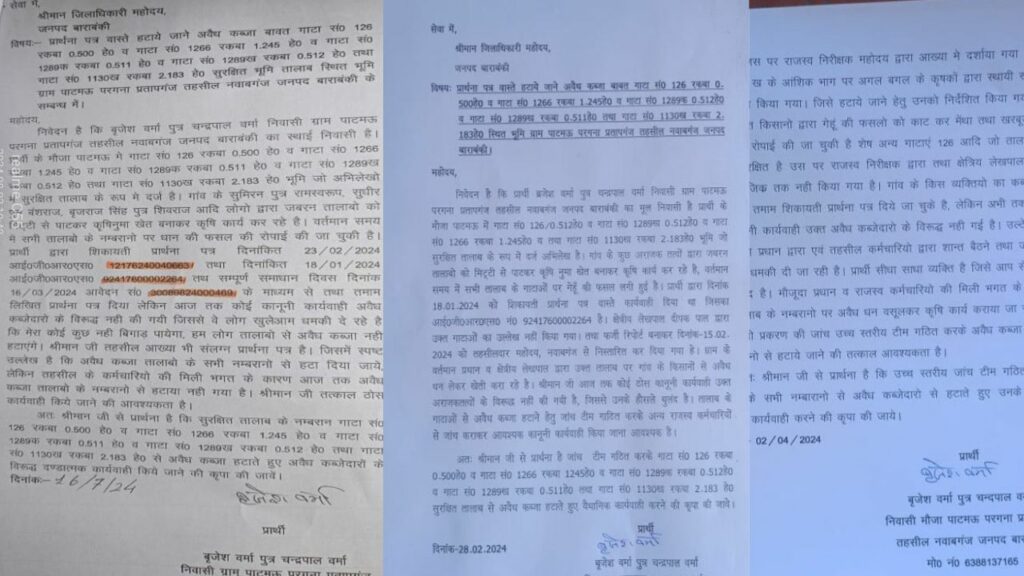 सेवा में,
श्रीमान जिलाधिकारी महोदय,
जनपद बाराबंकी
विषयः– प्रार्थना पत्र वास्ते हटाये जाने अवैध कब्जा बावत गाटा सं0 126
रकबा 0.500 हे0 व गाटा सं0 1266 रकबा 1.245 हे0 व गाटा सं0
1289क रकबा 0.511 हे0 व गाटा सं0 1289ख रकबा 0.512 हे0 तथा
गाटा सं0 1130ख रकबा 2.183 हे0 सुरक्षित भूमि तालाब स्थित भूमि
ग्राम पाटमऊ परगना प्रतापगंज तहसील नवाबगंज जनपद बाराबंकी के
सम्बन्ध में।
महोदय,
निवेदन है कि बृजेश वर्मा पुत्र चन्द्रपाल वर्मा निवासी ग्राम पाटमऊ
परगना प्रतापगंज तहसील नवाबगंज जनपद बाराबंकी का स्थाई निवासी है।
के मौजा पाटमऊ मे गाटा सं0 126 रकबा 0.500 हे0 व गाटा सं0 1266
रकबा 1.245 हे0 व गाटा सं0 1289क रकबा 0.511 हे0 व गाटा सं0 1289ख
रकबा 0.512 हे0 तथा गाटा सं0 1130ख रकबा 2.183 हे0 भूमि जो अभिलेखो
सुरक्षित तालाब के रूप मे दर्ज है। गांव के सुमिरन पुत्र रामस्वरूप, सुधीर
बंशराज, बृजराज सिंह पुत्र शिवराज आदि लोगो द्वारा जबरन तालाबो को
मिट्टी से पाटकर कृषिनुमा खेत बनाकर कृषि कार्य कर रहे है। वर्तमान समय
मे सभी तालाबो के नम्बरानो पर धान की फसल की रोपाई की जा चुकी है।
प्रार्थी द्वारा शिकायती प्रार्थना पत्र दिनांकित 23/02/2024
आई0जी0आर0एस0 12176240040663 तथा दिनांकित 18/01/2024
आई0जी0आर0एस0 92417600002264 तथ सम्पूर्ण समाधान दिवस दिनांक
16/03/2024 आवेदन सं0 30089824000469 के माध्यम से तथा तमाम
लिखित प्रार्थना पत्र दिया लेकिन आज तक कोई कानूनी कार्यवाही अवैध
कब्जेदारो के विरूद्ध नही की गयी जिससे वे लोग खुलेआम धमकी दे रहे है
कि मेरा कोई कुछ नही बिगाड पायेगा, हम लोग तालाबो से अवैध कब्जा नही
हटाएंगे। श्रीमान जी तहसील आख्या भी संलग्न प्रार्थना पत्र है। जिसमें स्पष्ट
उल्लेख है कि अवैध कब्जा तालाबो के सभी नम्बरानो से हटा दिया जाये,
लेकिन तहसील के कर्मचारियो की मिली भगत के कारण आज तक अवैध
कब्जा तालाबो के नम्बरानो से हटाया नही गया है। श्रीमान जी तत्काल ठोस
कार्यवाही किये जाने की आवश्यकता है।
अतः श्रीमान जी से प्रार्थना है कि सुरक्षित तालाब के नम्बरान गाटा सं0
126 रकबा 0.500 हे0 व गाटा सं0 1266 रकबा 1.245 हे0 व गाटा सं0
1289क रकबा 0.511 हे0 व गाटा सं0 1289ख रकबा 0.512 हे0 तथा गाटा
सं0 1130ख रकबा 2.183 हे0 से अवैध कब्जा हटाते हुए अवैध कब्जेदारो के
विरूद्ध दण्डात्मक कार्यवाही किये जाने की कृपा की जावें।
दिनांकः- 16/7/24
बृजेश वर्मा
प्रार्थी
बृजेश वर्मा पुत्र चन्द्रपाल वर्मा
निवासी ग्राम पाटमऊ परगना प्रतापगंज
सेवा में,
श्रीमान जिलाधिकारी महोदय,
जनपद बाराबंकी
विषयः प्रार्थना पत्र वास्ते हटाये जाने अवैध कब्जा बाबत गाटा सं0 126 रकबा 0.
500हे0 व गाटा सं0 1266 रकबा 1.245हे0 व गाटा सं0 1289क 0.512हे0
व गाटा सं0 1289ख रकबा 0.511हे0 तथा गाटा सं0 1130ख रकबा 2.
183हे0 स्थित भूमि ग्राम पाटमऊ परगना प्रतापगंज तहसील नवाबगंज जनपद
बाराबंकी।
महोदय,
निवेदन है कि प्रार्थी ब्रजेश वर्मा पुत्र चन्द्रपाल वर्मा निवासी ग्राम पाटमऊ
परगना प्रतापगंज तहसील नवाबगंज जनपद बाराबंकी का मूल निवासी है। प्रार्थी के
मौजा पाटमऊ में गाटा सं0 126/0.512हे0 व गाटा सं0 1289क रकबा 0.512हे0 व गाटा
सं0 1266 रकबा 1.245हे0 व तथा गाटा सं0 1130ख रकबा 2.183हे0 भूमि जो
सुरक्षित तालाब के रूप में दर्ज अभिलेख है। गांव के कुछ अराजक तत्वों द्वारा जबरन
तालाबो को मिट्टी से पाटकर कृषि नुमा खेत बनाकर कृषि कार्य कर रहे है, वर्तमान
समय में सभी तालाब के गाटाओं पर गेंहूँ की फसल लगी हुई है। प्रार्थी द्वारा दिनांक
18.01.2024 को शिकायती प्रार्थना पत्र वास्ते कार्यवाही दिया था जिसका
आई0जी0आर0एस0 नं0 92417600002264 है। क्षेत्रीय लेखपाल दीपक पाल द्वारा
उक्त गाटाओं का उल्लेख नही किया गया। तथा फर्जी रिपोर्ट बनाकर दिनांक-15.02.
2024 को तहसीलदार महोदय, नवाबगंज से निस्तारित कर दिया गया है। ग्राम के
वर्तमान प्रधान व क्षेत्रीय लेखपाल द्वारा उक्त तालाब पर गांव के किसानों से अवैध
धन लेकर खेती करा रहे है। श्रीमान जी आज तक कोई ठोस कानूनी कार्यवाही उक्त
अराजकतत्वों के विरूद्ध नही की गयी है, जिससे उनके हौसले बुलंद है। तालाब के
गाटाओं से अवैध कब्जा हटाने हेतु जांच टीम गठित करके अन्य राजस्व कर्मचारियों
से जांच कराकर आवश्यक कानूनी कार्यवाही किया जाना आवश्यक है।
अतः श्रीमान जी से प्रार्थना है जांच टीम गठित करके गाटा सं0 126 रकबा
0.500हे0 व गाटा सं0 1266 रकबा 1245हे0 व गाटा सं0 1289क रकबा 0.512हे0
व गाटा सं0 1289ख रकबा 0.511हे0 तथा गाटा सं0 1130ख रकबा 2.183 हे0
सुरक्षित तालाब से अवैध कब्जा हटाते हुए वैधानिक कार्यवाही करने की कृपा की जावे।
प्रार्थी
दिनांक-28.02.2024
बृजेश वर्मा
बृजेश वर्मा पुत्र चन्द्रपाल वर्मा
स पर राजस्व निरीक्षक महोदय द्वारा आख्या में दर्शाया गया
ख के आंशिक भाग पर अगल बगल के कृषकों द्वारा स्थायी
किया गया। जिसे हटाये जाने हेतु उनको निर्देशित किया गय
किसानो द्वारा गेहूं की फसलो को काट कर मेंथा तथा खरबू
रोपाई की जा चुकी है शेष अन्य गाटाएं 126 आदि जो ताल
क्षित है उस पर राजस्व निरीक्षक द्वारा तथा क्षेत्रीय लेखपाल
जिक तक नही किया गया है। गांव के किस व्यक्तियो का कब
तमाम शिकायती प्रार्थना पत्र दिये जा चुके है, लेकिन अभी तक
कार्यवाही उक्त अवैध कब्जेदारों के विरूद्ध नही गई है। उल्टे
प्रधान द्वारा एवं तहसील कर्मचारियो द्वारा शान्त बैठने तथा ज
धमकी दी जा रही है। प्रार्थी सीधा साधा व्यक्ति है जिसे आप से
है। मौजूदा प्रधान व राजस्व कर्मचारियों की मिली भगत के
ाब के नम्बरानो पर अवैध धन वसूलकर कृषि कार्य कराया जा
प्रकरण की जांच उच्च स्तरीय टीम गठित करके अवैध कब्जा
नो से हटाये जाने की तत्काल आवश्यकता है।
श्रीमान जी से प्रार्थना है कि उच्च स्तरीय जांच टीम गठित
के सभी नम्बारानो से अवैध कब्जेदारो से हटाते हुए उनके
कार्यवाही करने की कृपा की जाये।
02/04/2024
प्रार्थी
बृजेश वर्मा
बृजेश वर्मा पुत्र चन्द्रपाल
निवासी मौजा पाटमऊ परगना प्र
तहसील नवाबगंज जनपद बार
मो0 नं0 6388137165